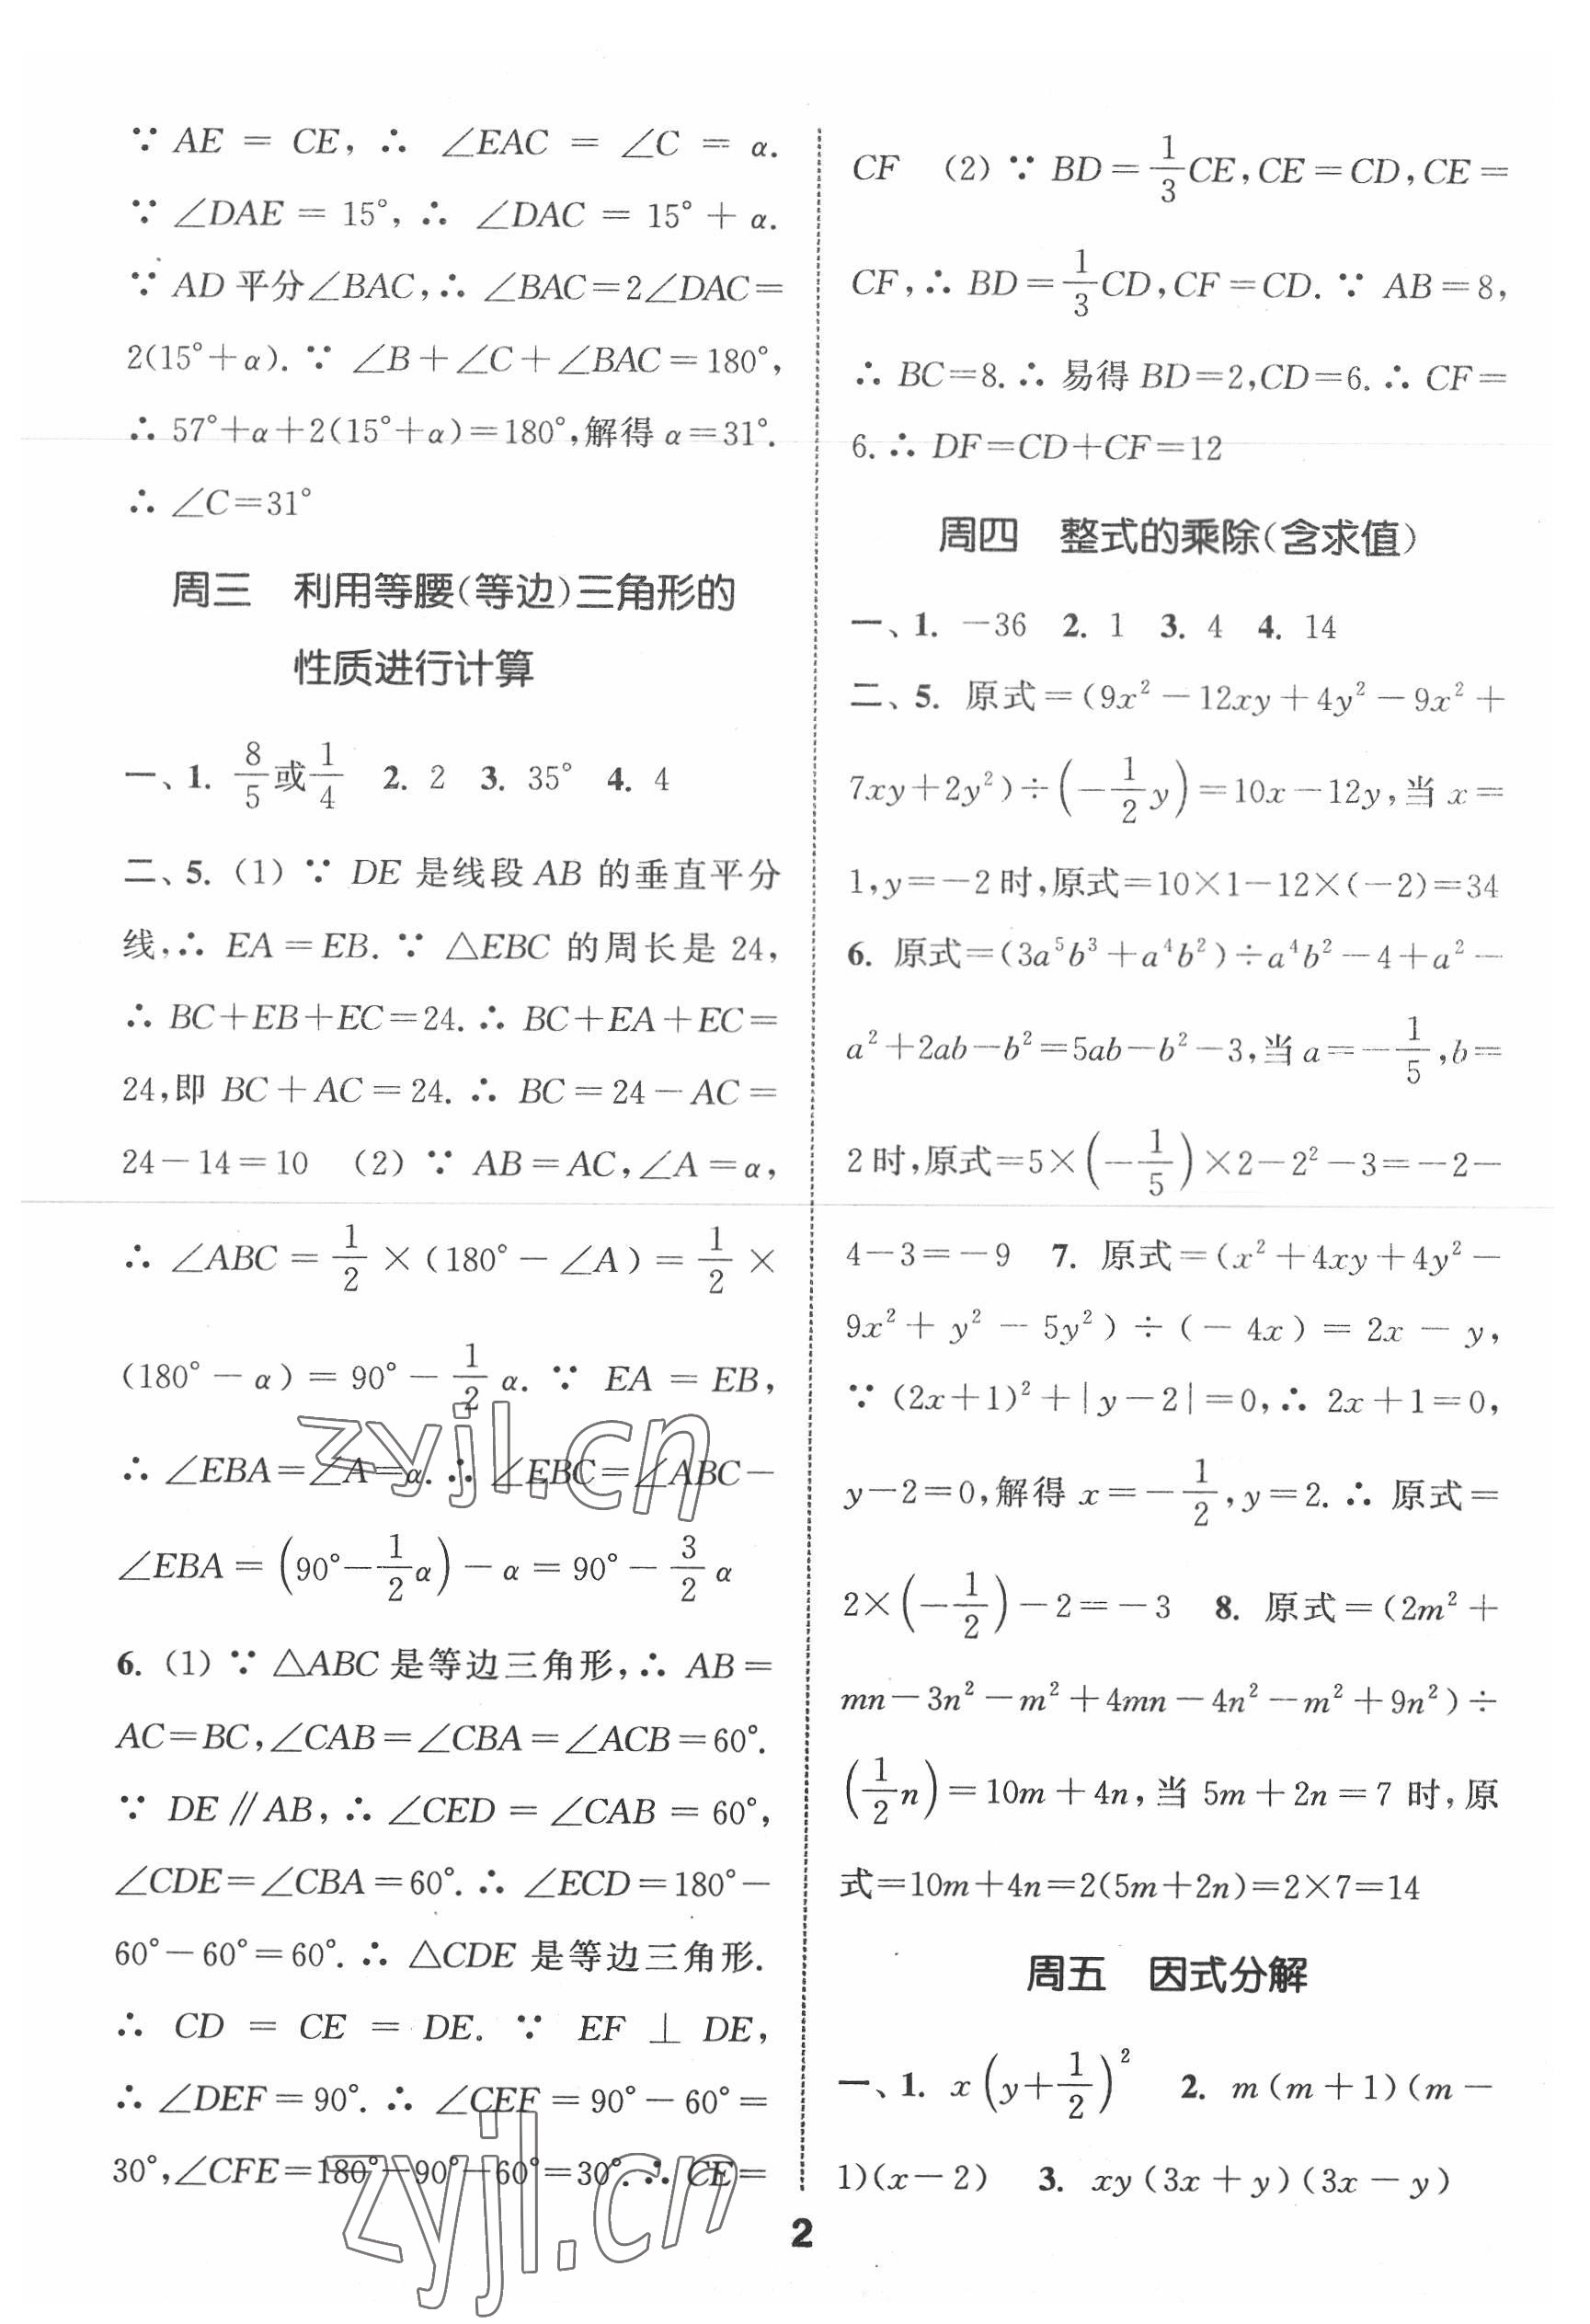 ∵ AE = CE, ∴ ∠EAC = ∠C = α.
∵ ∠DAE = 15°, ∴ ∠DAC = 15° + α.
∵ AD 平分∠BAC,∴ ∠BAC=2∠DAC=
2(15°+α). ∵ ∠B+∠C+∠BAC=180°,
∴ 57°+α+2(15°+α)=180°,解得 α=31°.
∴ ∠C=31°
周三 利用等腰(等边)三角形的
性质进行计算
一、1. 8/5或1/4 2. 2 3. 35° 4. 4
二、5. (1) ∵ DE 是线段 AB 的垂直平分
线,∴ EA=EB. ∵ △EBC 的周长是 24,
∴ BC+EB+EC=24. ∴ BC+EA+EC=
24,即 BC+AC=24. ∴ BC=24-AC=
24-14=10 (2) ∵ AB=AC,∠A=α,
∴ ∠ABC=1/2×(180°-∠A)=1/2×
(180°-α)=90°-1/2α. ∵ EA=EB,
∴ ∠EBA=∠A=α. ∴ ∠EBC=∠ABC-
∠EBA=(90°-1/2α)-α=90°-3/2α
6. (1) ∵ △ABC 是等边三角形,∴ AB=
AC=BC,∠CAB=∠CBA=∠ACB=60°.
∵ DE∥AB, ∴ ∠CED=∠CAB=60°,
∠CDE=∠CBA=60°. ∴ ∠ECD=180°-
60°-60°=60°. ∴ △CDE 是等边三角形.
∴ CD = CE = DE. ∵ EF ⊥ DE,
∴ ∠DEF=90°. ∴ ∠CEF=90°-60°=
30°,∠CFE=180°-90°-60°=30°. ∴ CE=
CF (2) ∵ BD=1/3CE,CE=CD,CE=
CF,∴ BD=1/3CD,CF=CD. ∵ AB=8,
∴ BC=8. ∴ 易得 BD=2,CD=6. ∴ CF=
6. ∴ DF=CD+CF=12
周四 整式的乘除(含求值)
一、1. -36 2. 1 3. 4 4. 14
二、5. 原式=(9x²-12xy+4y²-9x²+
7xy+2y²)÷(-1/2y)=10x-12y,当 x=
1,y=-2 时,原式=10×1-12×(-2)=34
6. 原式=(3a⁵b³+a⁴b²)÷a⁴b²-4+a²-
a²+2ab-b²=5ab-b²-3,当 a=-1/5,b=
2 时,原式=5×(-1/5)×2-2²-3=-2-
4-3=-9 7. 原式=(x²+4xy+4y²-
9x²+y²-5y²)÷(-4x)=2x-y,
∵ (2x+1)²+|y-2|=0,∴ 2x+1=0,
y-2=0,解得 x=-1/2,y=2. ∴ 原式=
2×(-1/2)-2=-3 8. 原式=(2m²+
mn-3n²-m²+4mn-4n²-m²+9n²)÷
(1/2n)=10m+4n,当 5m+2n=7 时,原
式=10m+4n=2(5m+2n)=2×7=14
周五 因式分解
一、1. x(y+1/2)² 2. m(m+1)(m-
1)(x-2) 3. xy(3x+y)(3x-y)
2
zyjl.cn
zyjl.cn